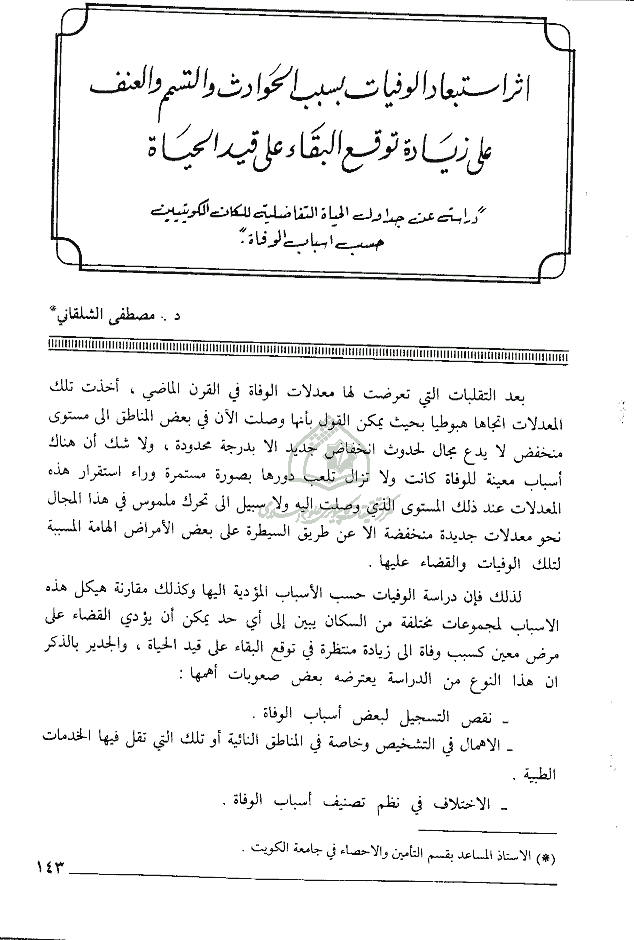 اثر استبعاد الوفيات بسبب الحوادث والتسمم والعنف
على زيادة توقع البقاء على قيد الحياة
"دراسة عن جداول الحياة التفاضلية للسكان الكويتيين
حسب اسباب الوفاة".
د. مصطفى الشلقاني*
بعد التقلبات التي تعرضت لها معدلات الوفاة في القرن الماضي ، أخذت تلك
المعدلات اتجاها هبوطيا بحيث يمكن القول بأنها وصلت الآن في بعض المناطق الى مستوى
منخفض لا يدع مجال لحدوث انخفاض جديد الا بدرجة محدودة ، ولا شك أن هناك
أسباب معينة للوفاة كانت ولا تزال تلعب دورها بصورة مستمرة وراء استقرار هذه
المعدلات عند ذلك المستوى الذي وصلت اليه ولا سبيل الى تحرك ملموس في هذا المجال
نحو معدلات جديدة منخفضة الا عن طريق السيطرة على بعض الأمراض الهامة المسببة
لتلك الوفيات والقضاء عليها .
لذلك فإن دراسة الوفيات حسب الأسباب المؤدية اليها وكذلك مقارنة هيكل هذه
الاسباب لمجموعات مختلفة من السكان يبين إلى أي حد يمكن أن يؤدي القضاء على
مرض معين كسبب وفاة الى زيادة منتظرة في توقع البقاء على قيد الحياة ، والجدير بالذكر
ان هذا النوع من الدراسة يعترضه بعض صعوبات أهمها :
ـ نقص التسجيل لبعض أسباب الوفاة .
ـ الاهمال في التشخيص وخاصة في المناطق النائية أو تلك التي تقل فيها الخدمات
الطبية .
ـ الاختلاف في نظم تصنيف أسباب الوفاة .
(*) الاستاذ المساعد بقسم التأمين والاحصاء في جامعة الكويت .
١٤٣